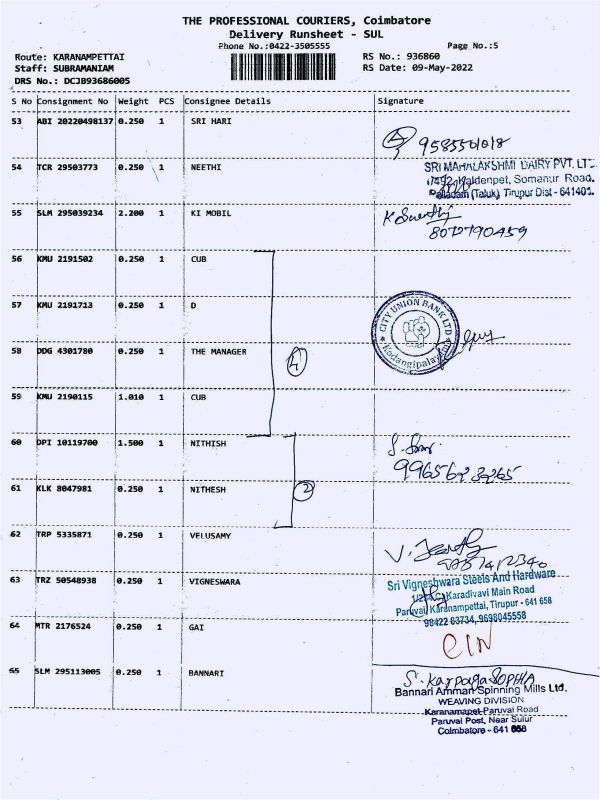 THE PROFESSIONAL COURIERS, Coimbatore
Delivery Runsheet - SUL
Phone No.:0422-3505555 Page No.:5
Route: KARANAMPETTAI RS No.: 936860
Staff: SUBRAMANIAM RS Date: 09-May-2022
DRS No.: DCJB93686005
S No Consignment No Weight PCS Consignee Details Signature
53 ABI 20220498137 0.250 1 SRI HARI
9585501018
54 TCR 29503773 0.250 1 NEETHI
SRI MAHALAKSHMI DAIRY PVT. LTD.
Somanur Road.
Palladam (Taluk) Tirupur Dist - 641401.
55 SLM 295039234 2.200 1 KI MOBIL
8072790459
56 KMU 2191502 0.250 1 CUB
57 KMU 2191713 0.250 1 D
CITY UNION BANK LTD
Kodangipalayam
58 DDG 4301780 0.250 1 THE MANAGER
4
59 KMU 2190115 1.010 1 CUB
60 DPI 10119700 1.500 1 NITHISH
61 KLK 8047981 0.250 1 NITHESH
2
62 TRP 5335871 0.250 1 VELUSAMY
63 TRZ 50548938 0.250 1 VIGNESWARA
Sri Vigneshwara Steels And Hardware
Karadivavi Main Road
Paruvai Karanampettai, Tirupur - 641 658
98422 63734, 9698045558
64 MTR 2176524 0.250 1 GAI
65 SLM 295113005 0.250 1 BANNARI
Bannari Amman Spinning Mills Ltd.
WEAVING DIVISION
Karanamapet-Paruvai Road
Paruvai Post, Near Sulur
Coimbatore - 641 658